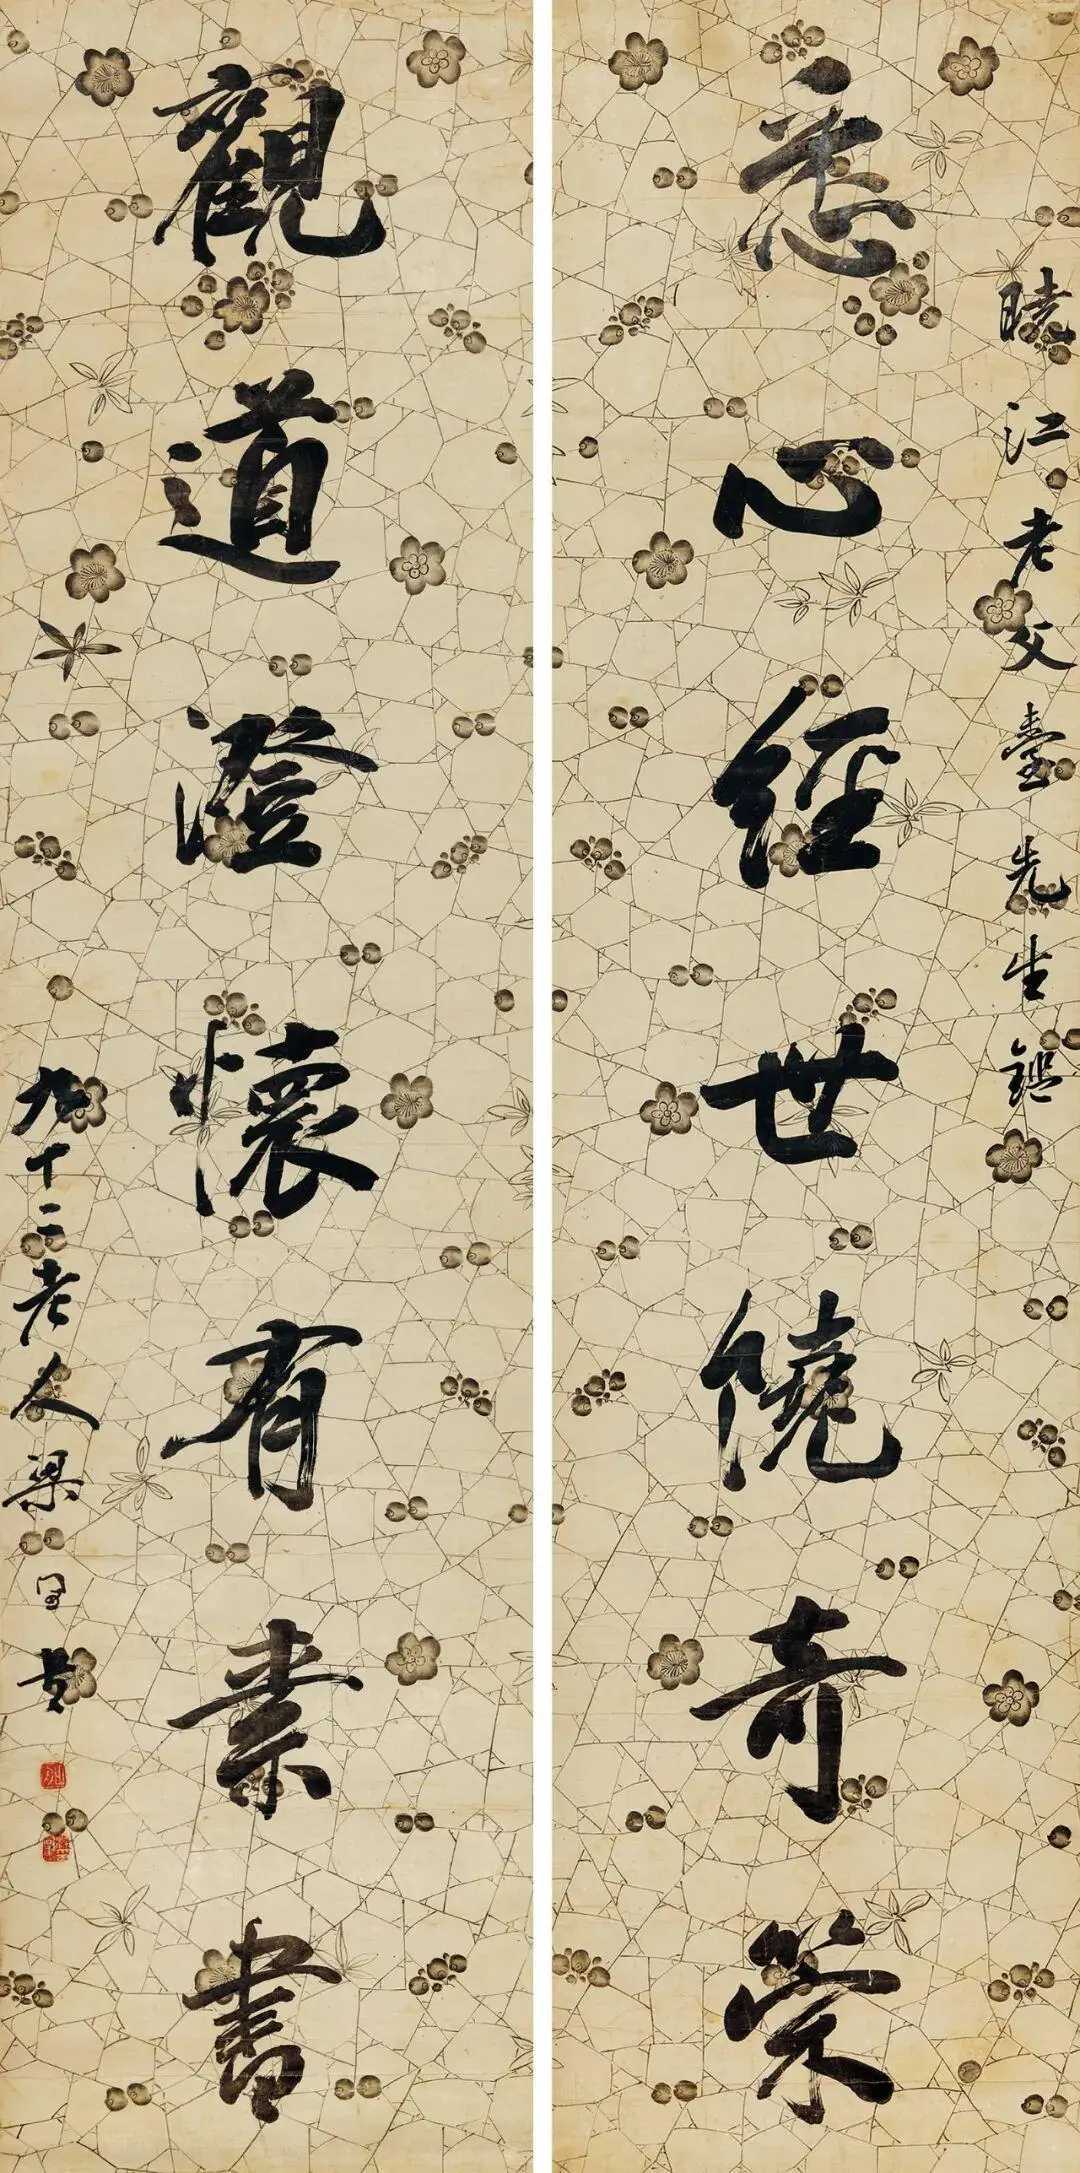 曉江老父臺先生鑑
悉心經世饒奇策
觀道澄懷有素書
九十二老人梁同書